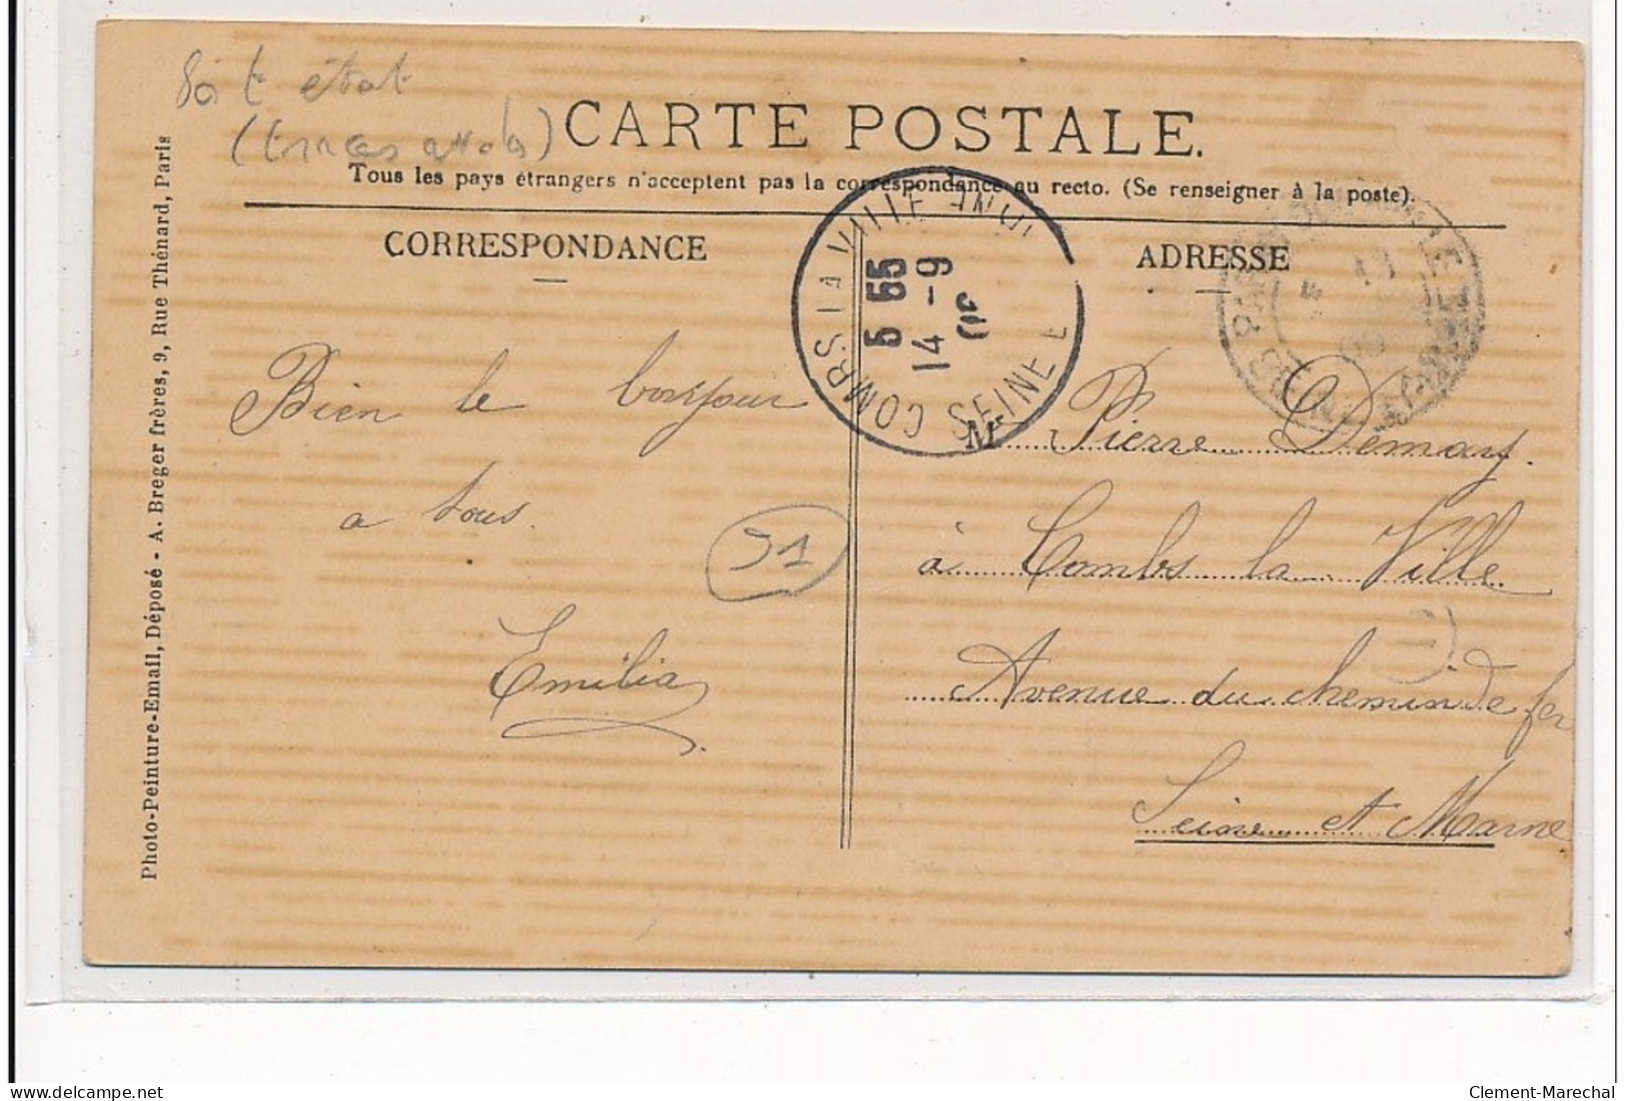 état
CARTE POSTALE.
Tous les pays étrangers n'acceptent pas la correspondance au recto. (Se renseigner à la poste).
CORRESPONDANCE
ADRESSE
COMBS LA VILLE
5 55
14 -9
SEINE
Bien le bonjour
a tous.
Emilia
91
M. Pierre Demay.
à Combs la Ville
Avenue du chemin de fer
Seine et Marne
Photo-Peinture-Email, Déposé - A. Breger frères, 9, Rue Thénard, Paris
Clement-Marechal